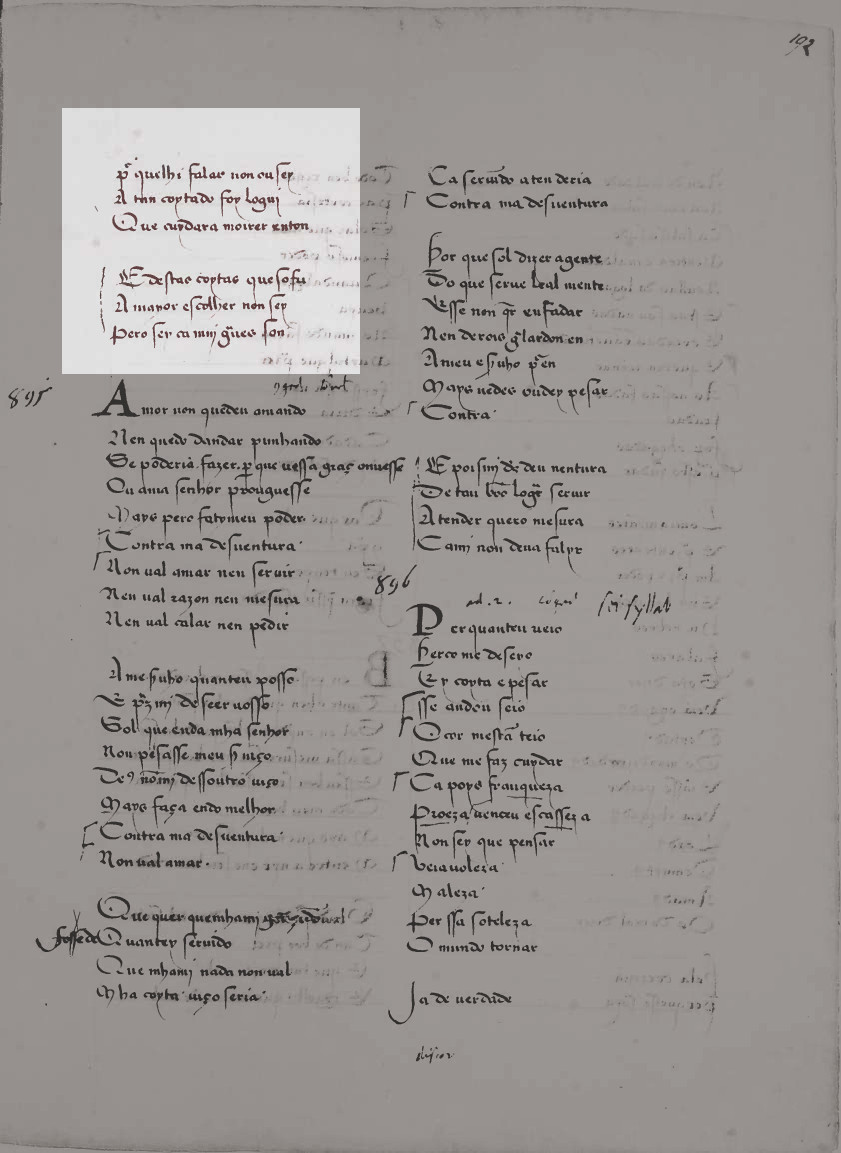 192
pr̃ quelhi falar non ousey
A tan coytado foy logui
Que cuydara moirer enton
E destas coytas que sofri
A mayor escolher non sey
Pero sey ca muy g̃ues son
895
Amor non quedeu amando
Nen quedo dandar punhando
Se poderia fazer per que uessa graç ouuesse
Ou a ma senhor prouguesse
Mays pero fa tomeu poder
Contra ma desuentura
Non val amar nen seruir
Nen val razon nen mesura
Nen val calar nen pedir
A me suyo quanteu posso
E pz mi de seer uosso
Sol que enda mha senhor
Non pesasse meu suiço
De9 nomi dessoutro uiço
Mays faça endo melhor
Contra ma desuentura
Non ual amar
Que quer que mhami
fosse de Quantey seruido
Que mhami nada non ual
Mha coyta uiço seria
Ca seruido a ten deria
Contra ma desuentura
Por que sol dizer a gente
Do que serue leal mente
Esse non qr̃ enfadar
Nen de rois g̃lardon en
A meu e suyo pr̃ en
Mays uedes ondey pesar
Contra
E poisimi deu uentura
De tan bõo logr̃ seruir
Atender quero mesura
Cami non deua falyr
896
Per quanteu ueio
Perco me deseio
Ey coyta e pesar
sse andou seio
O cor mesta teio
Que me faz cuydar
Ca poys franqueza
Proeza uenceu escasseza
Non sey que pensar
Veia uoleza
Maleza
Per ssa soteleza
O mundo tornar
Ja de uerdade